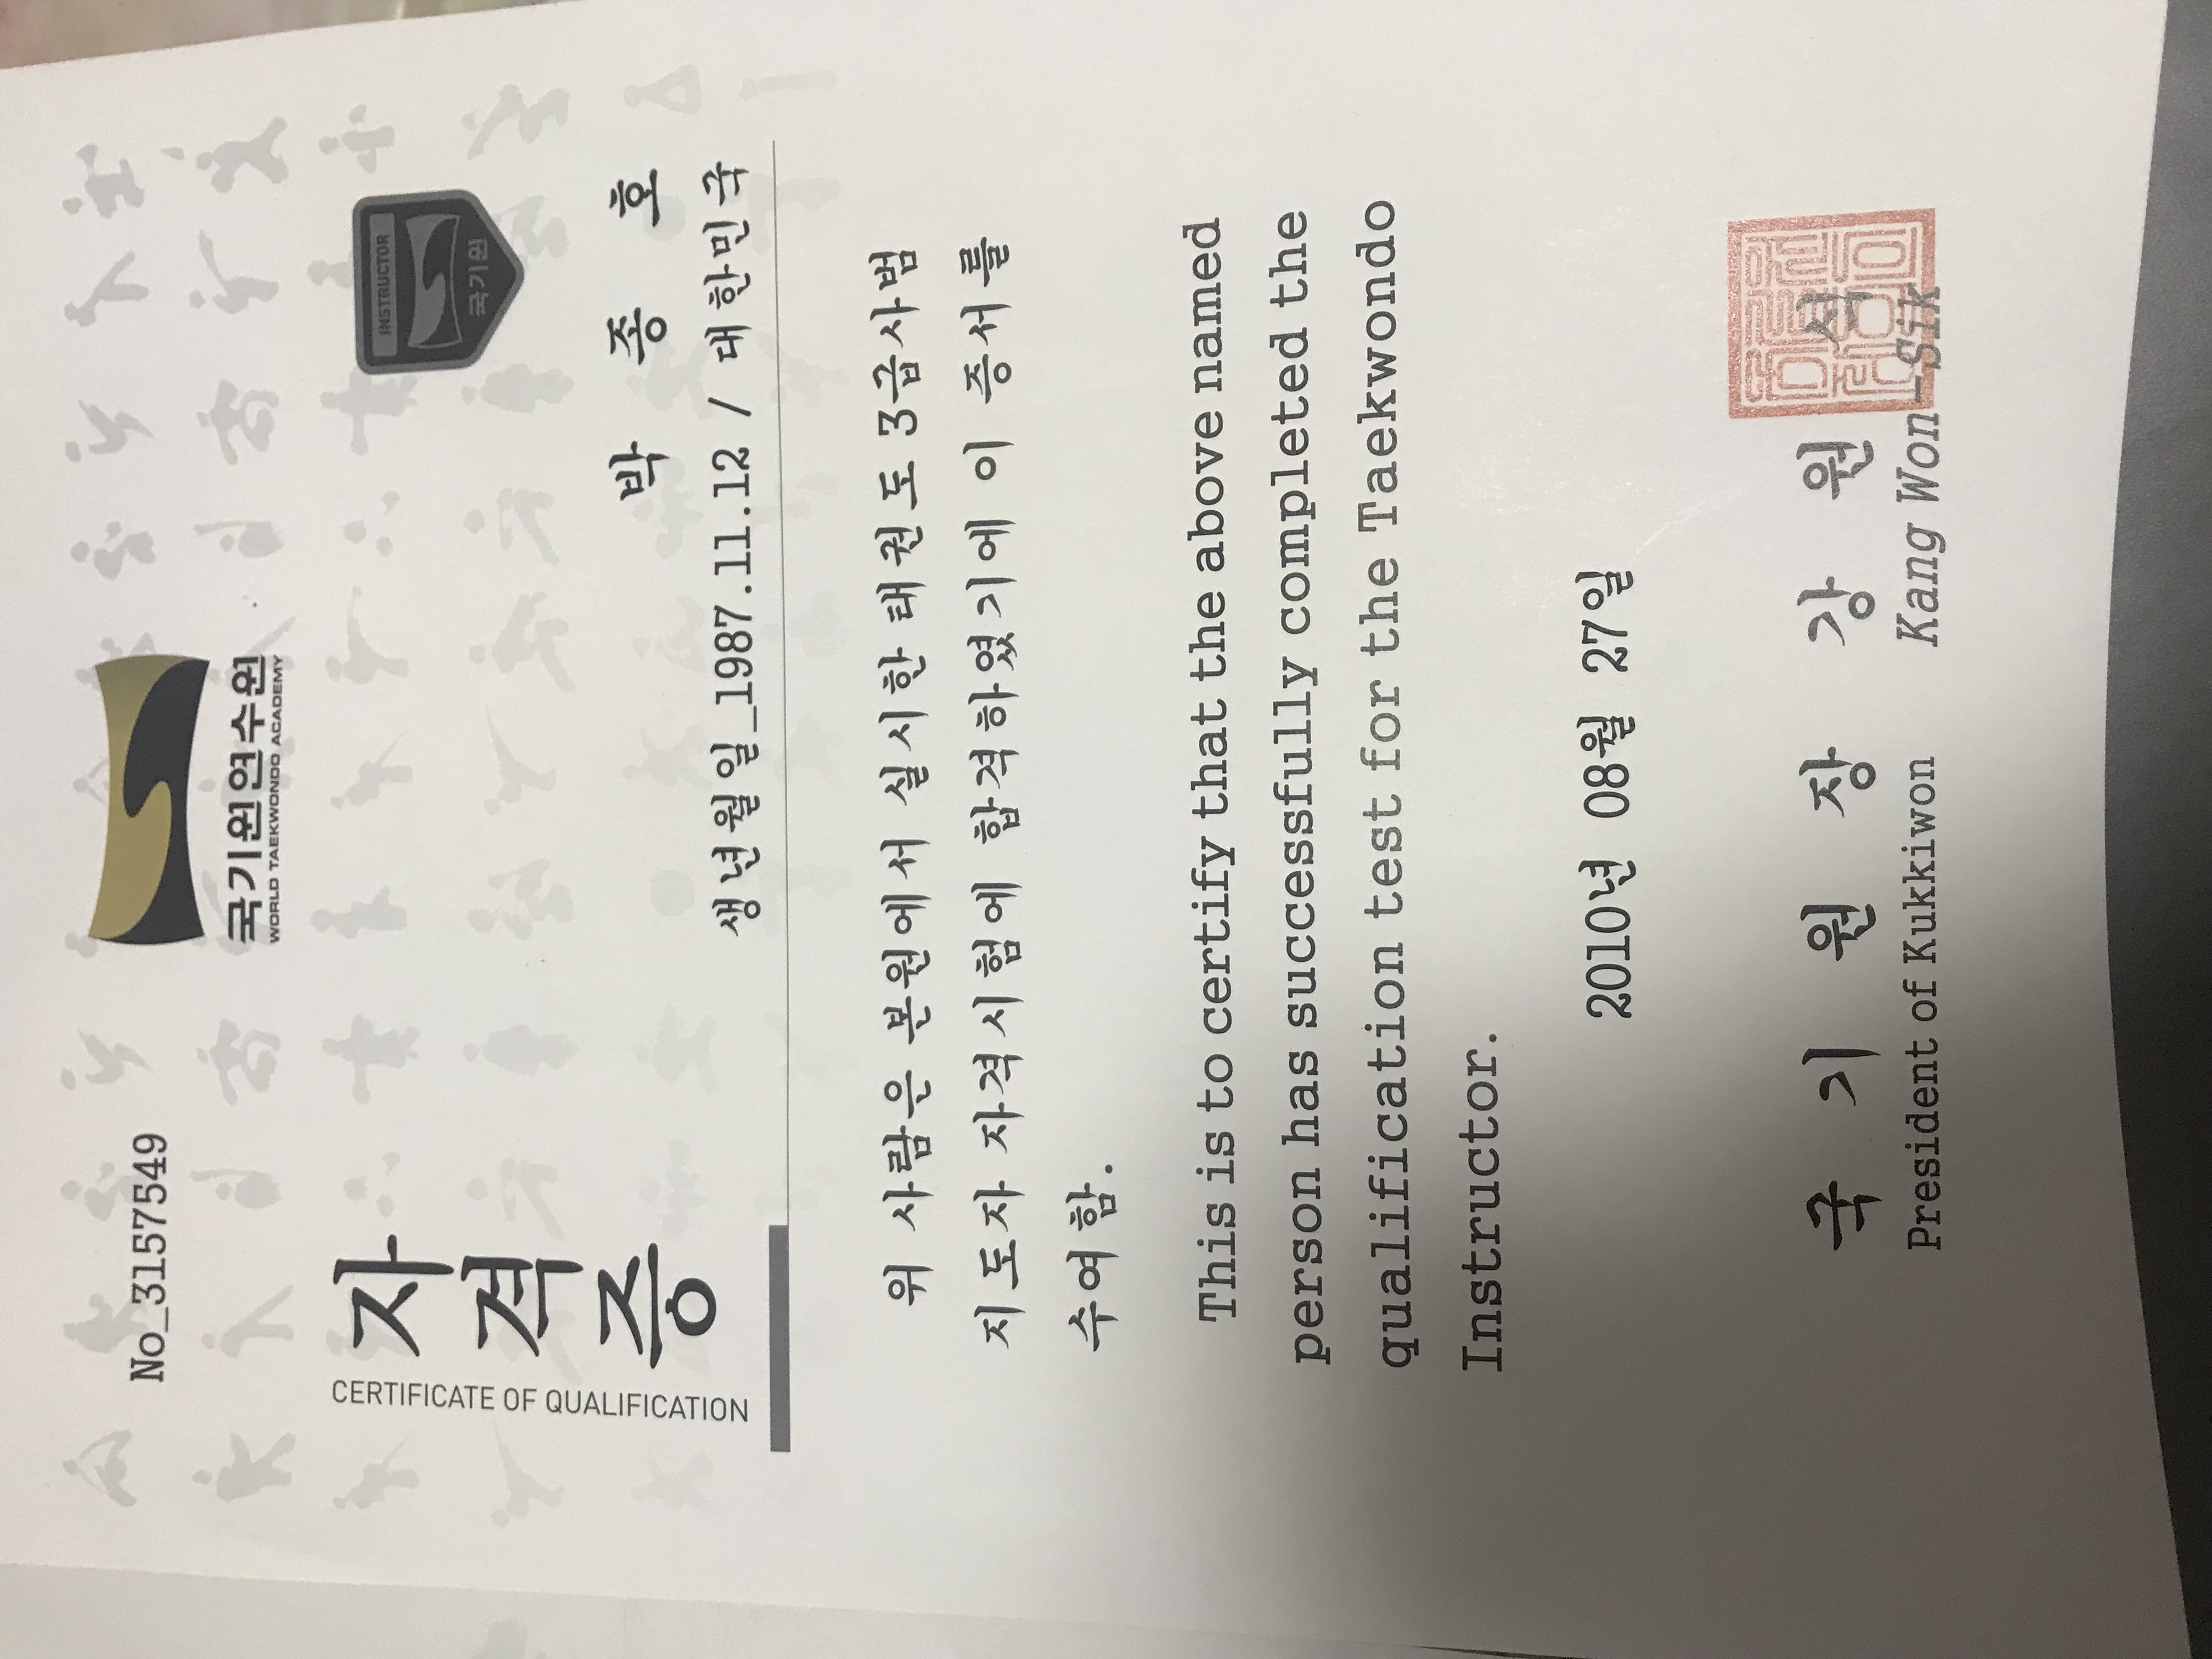 No_3157549
국기원연수원
WORLD TAEKWONDO ACADEMY
자격증
CERTIFICATE OF QUALIFICATION
INSTRUCTOR
국기원
박 종 호
생년월일_1987.11.12 / 대한민국
위 사람은 본원에서 실시한 태권도 3급사범
지도자 자격시험에 합격하였기에 이 증서를
수여함.
This is to certify that the above named
person has successfully completed the
qualification test for the Taekwondo
Instructor.
2010년 08월 27일
국 기 원 장 강 원 식
President of Kukkiwon Kang Won-Sik